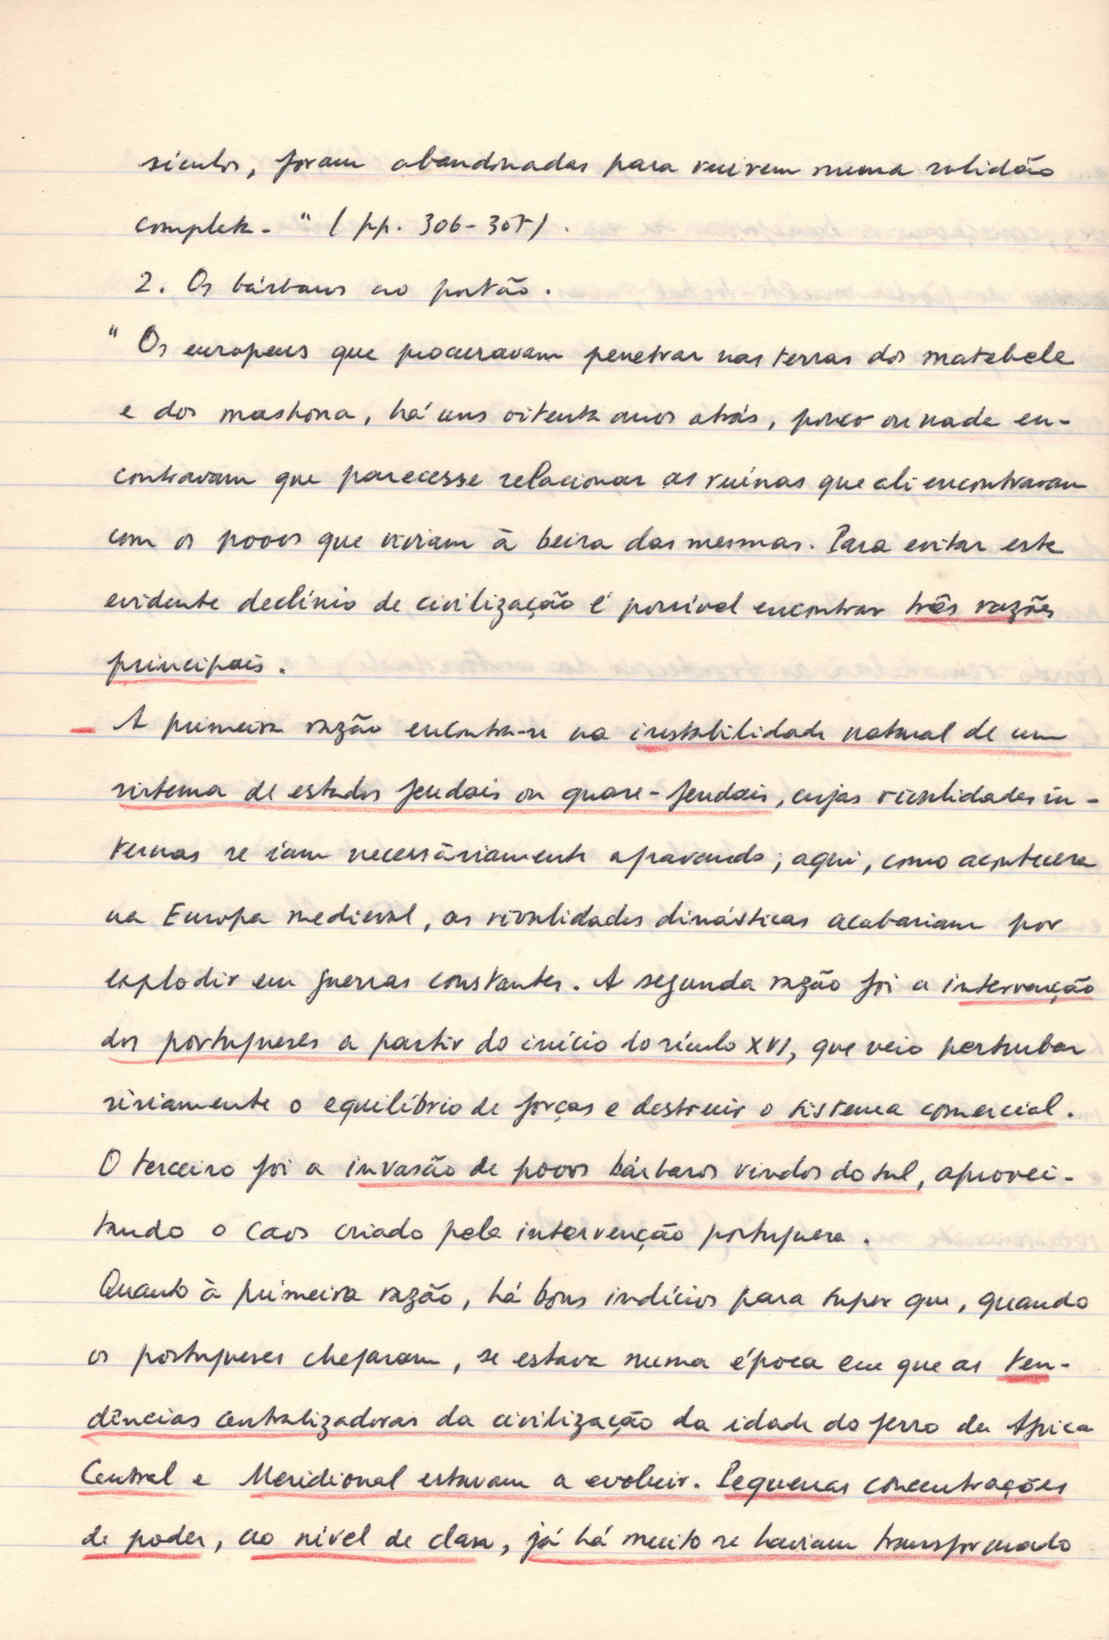 séculos, foram abandonadas para ruirem numa solidão
completa." (pp. 306-307).
2. Os bárbaros ao portão.
"Os europeus que procuravam penetrar nas terras dos matebele
e dos mashona, há uns oitenta anos atrás, pouco ou nada en-
contravam que parecesse relacionar as ruínas que ali encontravam
com os povos que viviam à beira das mesmas. Para evitar este
evidente declínio de civilização é possível encontrar três razões
principais.
A primeira razão encontra-se na instabilidade natural de um
sistema de estados feudais ou quase-feudais, cujas rivalidades in-
ternas se iam necessàriamente agravando; aqui, como acontecera
na Europa medieval, as rivalidades dinásticas acabariam por
explodir em guerras constantes. A segunda razão foi a intervenção
dos portugueses a partir do início do século XVI, que veio perturbar
sèriamente o equilíbrio de forças e destruir o sistema comercial.
O terceiro foi a invasão de povos bárbaros vindos do sul, aprovei-
tando o caos criado pela intervenção portuguesa.
Quanto à primeira razão, há bons indícios para supor que, quando
os portugueses chegaram, se estava numa época em que as ten-
dências centralizadoras da civilização da idade do ferro da África
Central e Meridional estavam a evoluir. Pequenas concentrações
de poder, ao nível de clan, já há muito se haviam transformado